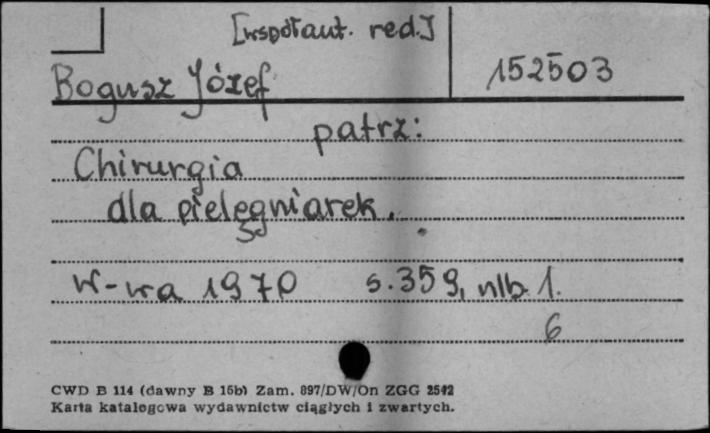 [współaut. red.]
Bogusz Józef
152503
patrz:
Chirurgia
dla pielęgniarek.
W-wa 1970 s. 359, nlb. 1.
6
CWD B 114 (dawny B 16b) Zam. 897/DW/On ZGG 2542
Karta katalogowa wydawnictw ciągłych i zwartych.